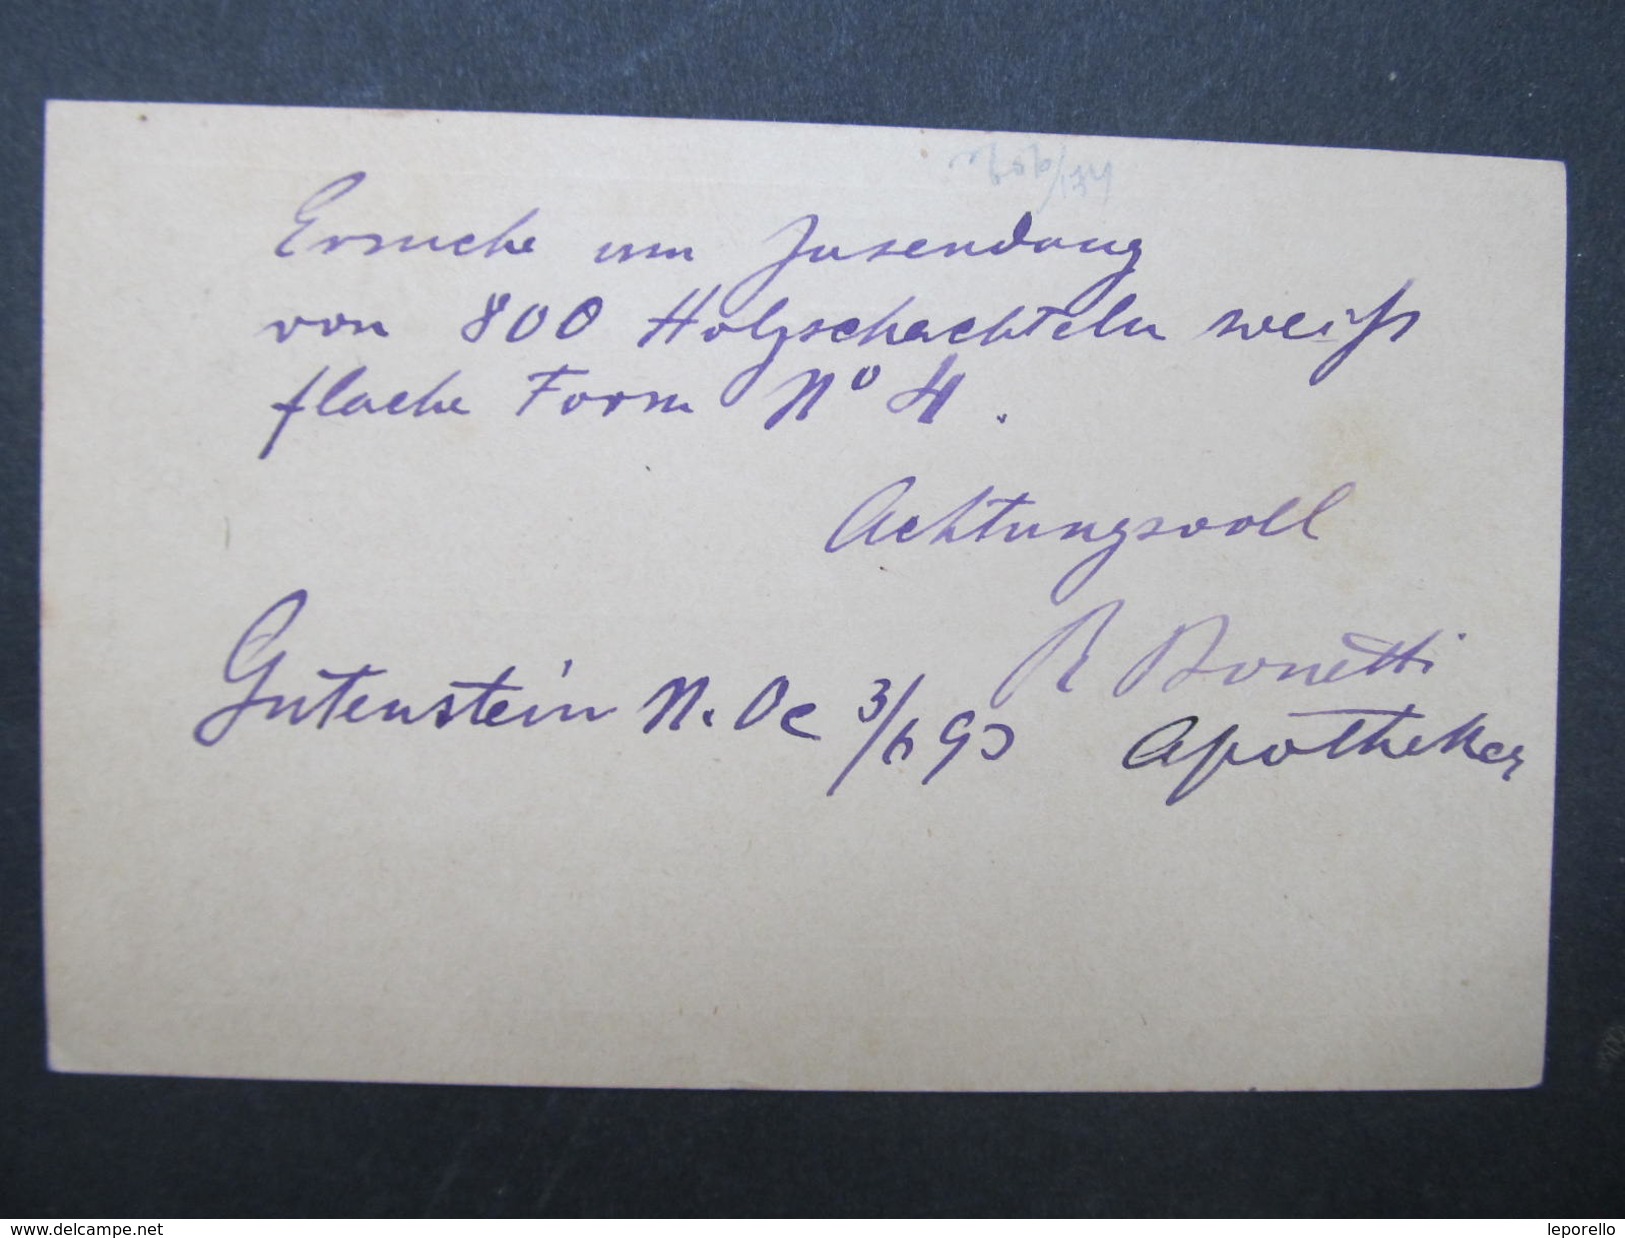 Ersuche um Zusendung
von 800 Holzschachteln weiß
flache Form No 4.
Achtungsvoll
R Bonetti
Gutenstein N. Oe 3/6 93 Apotheker
delcampe.net
leporello